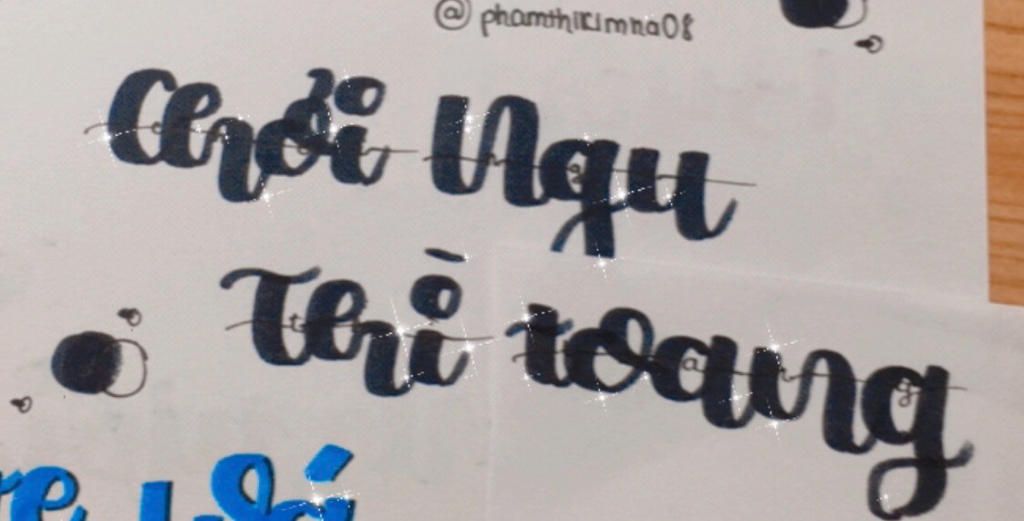 @phamthikimna08
Chơi Ngu
Thì toang